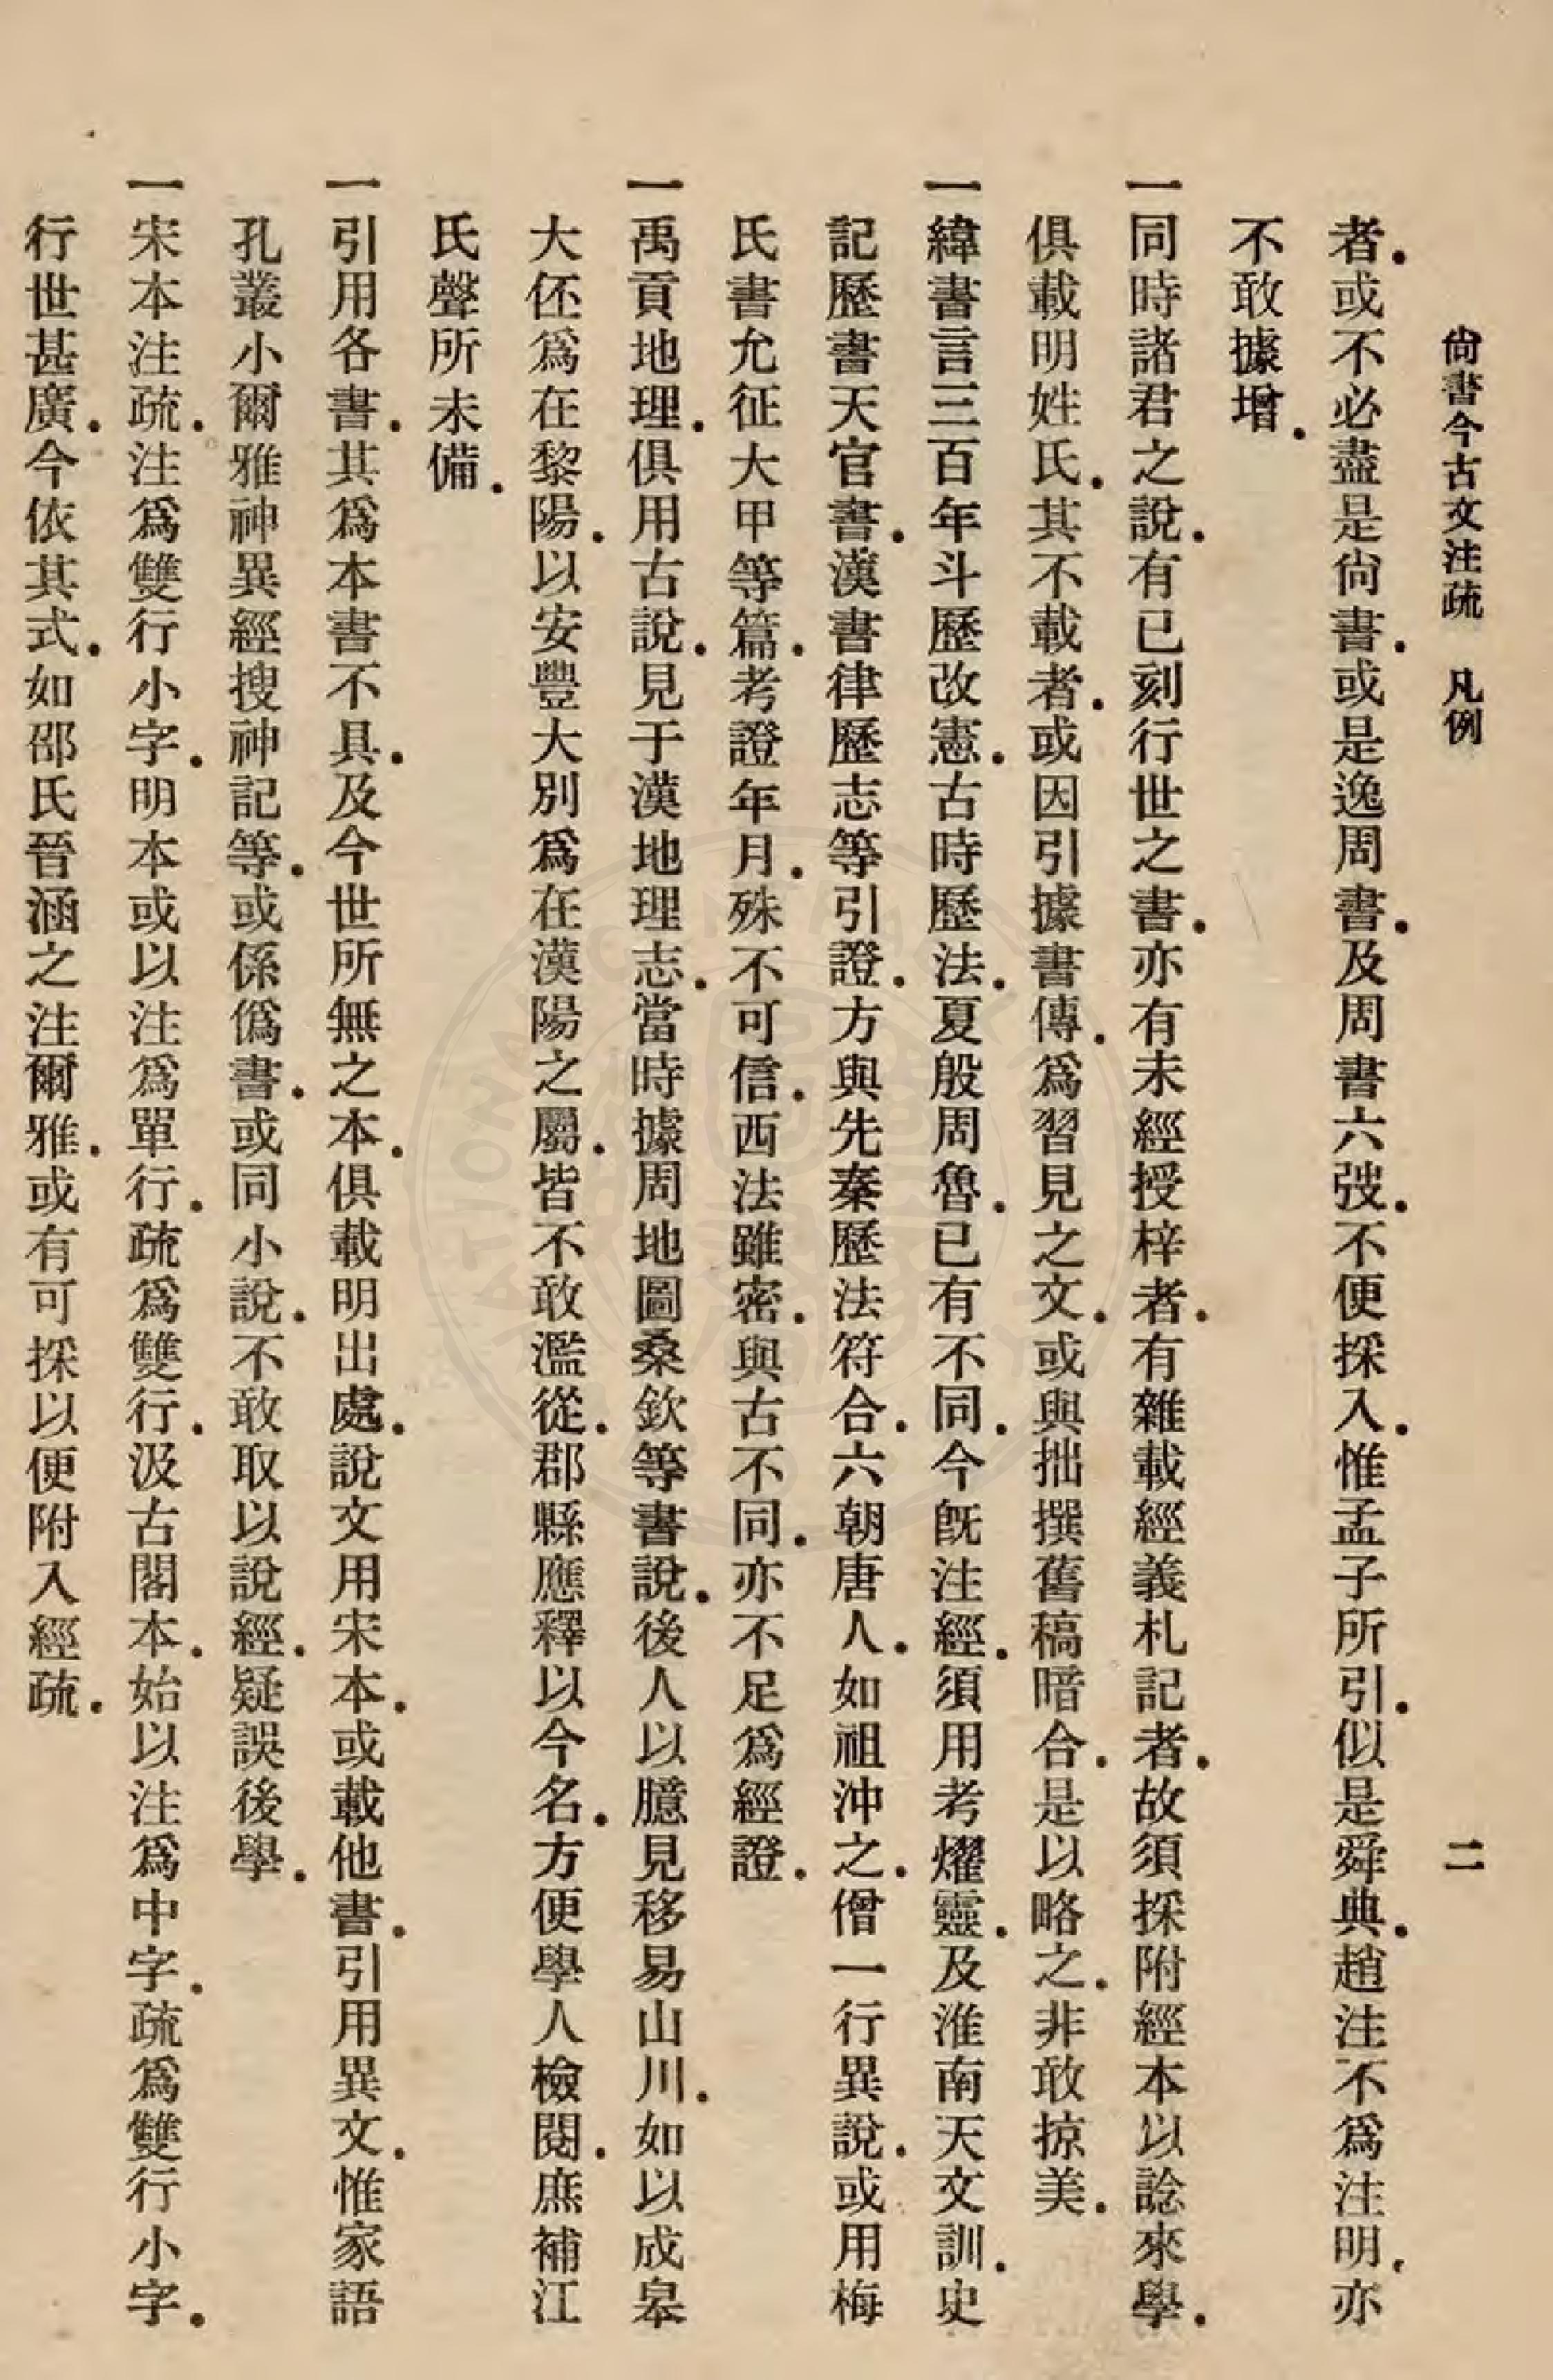 尙書今古文注疏　凡例　二
者．或不必盡是尙書．或是逸周書．及周書六弢．不便採入．惟孟子所引．似是舜典．趙注不爲注明．亦
不敢據增．
一同時諸君之說．有已刻行世之書．亦有未經授梓者．有雜載經義札記者．故須採附經本以諗來學．
俱載明姓氏．其不載者．或因引據書傳．爲習見之文．或與拙撰舊稿暗合．是以略之．非敢掠美．
一緯書言三百年斗歷改憲．古時歷法．夏殷周魯．已有不同．今旣注經．須用考燿靈．及淮南天文訓．史
記歷書天官書．漢書律歷志等引證．方與先秦歷法符合．六朝唐人．如祖沖之．僧一行異說．或用梅
氏書允征大甲等篇．考證年月．殊不可信．西法雖密．與古不同．亦不足爲經證．
一禹貢地理．俱用古說．見于漢地理志．當時據周地圖桑欽等書說．後人以臆見移易山川．如以成皋
大伾爲在黎陽．以安豐大別爲在漢陽之屬．皆不敢濫從．郡縣應釋以今名．方便學人檢閱．庶補江
氏聲所未備．
一引用各書．其爲本書不具．及今世所無之本．俱載明出處．說文用宋本．或載他書．引用異文．惟家語
孔叢小爾雅神異經搜神記等．或係僞書．或同小說．不敢取以說經．疑誤後學．
一宋本注疏．注爲雙行小字．明本或以注爲單行．疏爲雙行．汲古閣本．始以注爲中字．疏爲雙行小字．
行世甚廣．今依其式．如邵氏晉涵之注爾雅．或有可採以便附入經疏．